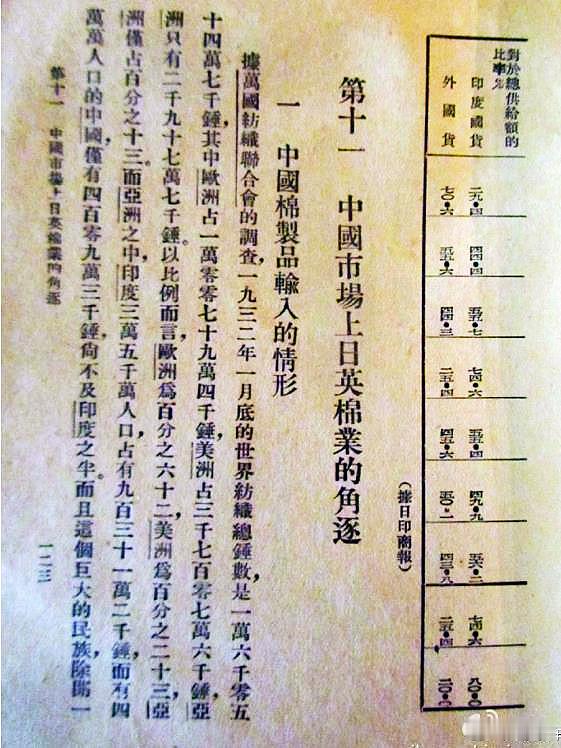 對於總供給額的
比率%
印度國貨 二九・四 四四・四 五五・七 七四・六 五四・四 四九・九 五六・二 七四・六 八〇・〇
外國貨 七〇・六 五五・六 四四・三 二五・四 四五・六 五〇・一 四三・八 二五・四 二〇・〇
(據日印商報)
第十一 中國市場上日英棉業的角逐
一 中國棉製品輸入的情形
據萬國紡織聯合會的調查,一九三二年一月底的世界紡織總錘數是一萬六千零五
十四萬七千錘,其中歐洲占一萬零零七十九萬四千錘,美洲占三千七百零七萬六千錘,亞
洲只有二千九十七萬七千錘。以比例而言,歐洲爲百分之六十二,美洲爲百分之二十三,亞
洲僅占百分之十三。而亞洲之中,印度三萬五千萬人口占有九百三十一萬二千錘,而有四
萬萬人口的中國,僅有四百零九萬三千錘,尙不及印度之半。而且這個巨大的民族除開一
第十一 中國市場上日英棉業的角逐
一二三